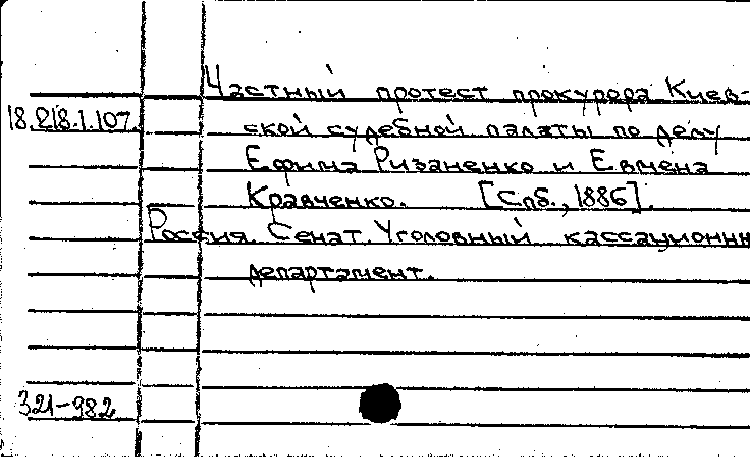 Частный протест прокурора Киев-
18.218.1.107. ской судебной палаты по делу
Ефима Ризаненко и Евмена
Кравченко. [Спб., 1886].
Россия. Сенат. Уголовный кассационн
департамент.
321-982